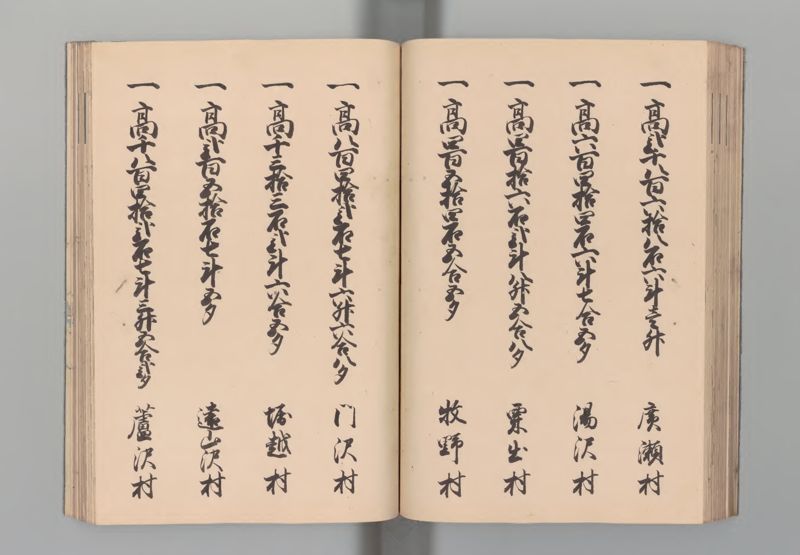 一高弐千八百六拾八石六斗壱升 廣瀬村
一高六百四拾四石六斗七合五夕 湯沢村
一高四百拾六石弐斗八升五合八夕 粟生村
一高四百五拾四石五合五夕 牧野村
一高八百四拾弐石七斗六升六合八夕 门沢村
一高千三拾三石弐斗六合五夕 堀越村
一高弐百五拾石七斗五夕 遠山沢村
一高千八百四拾弐石七斗三升五合弐夕 蘆沢村